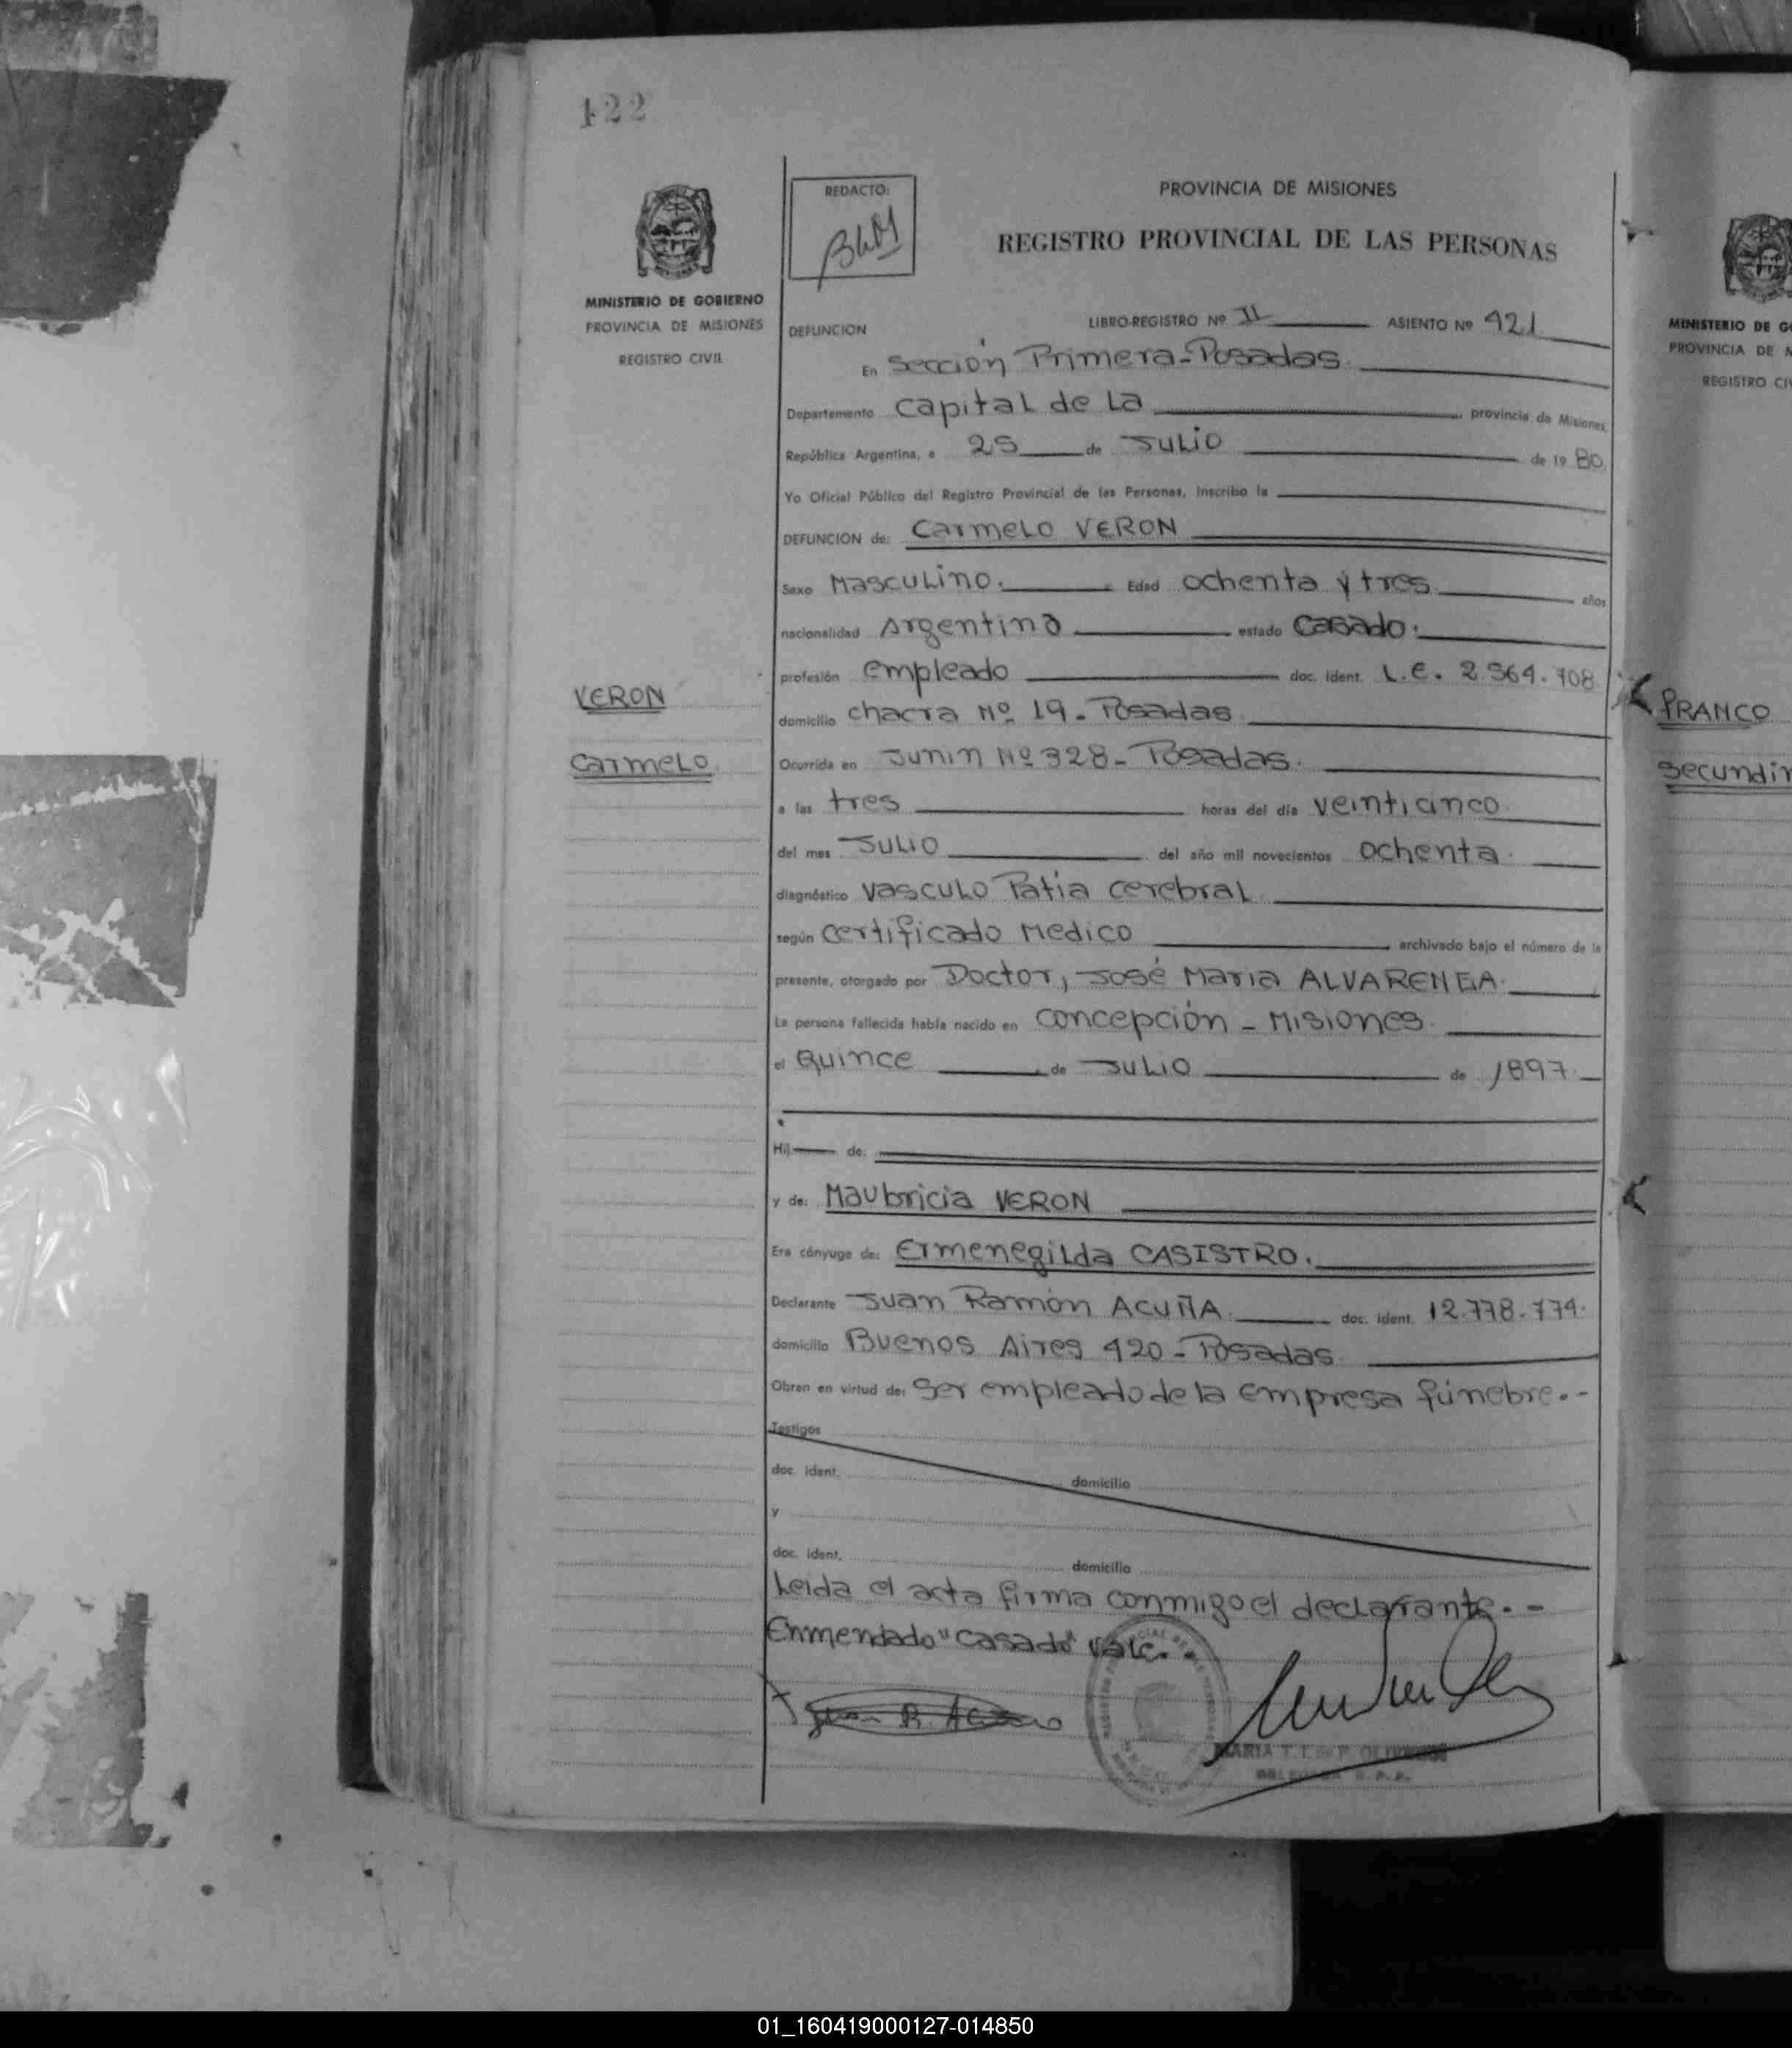 422
MINISTERIO DE GOBIERNO
PROVINCIA DE MISIONES
REGISTRO CIVIL
VERON
Carmelo
REDACTO:
PROVINCIA DE MISIONES
REGISTRO PROVINCIAL DE LAS PERSONAS
DEFUNCION LIBRO-REGISTRO Nº II ASIENTO Nº 421
En Sección Primera-Posadas
Departamento Capital de La provincia de Misiones,
República Argentina, a 25 de Julio de 1980
Yo Oficial Público del Registro Provincial de las Personas, Inscribo la
DEFUNCION de: Carmelo VERON
Sexo Masculino. Edad ochenta y tres años
nacionalidad Argentina estado casado.
profesión empleado doc. ident. L.E. 2.564.708
domicilio chacra Nº 19-Posadas
Ocurrida en Junin Nº 328-Posadas.
a las tres horas del día veinticinco
del mes Julio del año mil novecientos ochenta.
diagnóstico vasculo Patia cerebral
según certificado Medico archivado bajo el número de la
presente, otorgado por Doctor, José Maria ALVARENGA.
La persona fallecida había nacido en Concepción - Misiones.
el Quince de Julio de 1897.
Hij de:
y de: Maubricia VERON
Era cónyuge de: Ermenegilda CASISTRO.
Declarante Juan Ramón ACUÑA. doc. ident. 12.778.774.
domicilio Buenos Aires 420-Posadas
Obran en virtud de: ser empleado de la empresa fúnebre.-
Testigos
doc. ident. domicilio
y
doc. ident. domicilio
Leida el acta firma conmigo el declarante.-
Enmendado "casado" vale.-
Juan R. Acuña
MARIA T. I. de P. OLIVEIRA
DELEGADA R.P.P.
MINISTERIO DE G
PROVINCIA DE M
REGISTRO CIV
FRANCO
Secundin
01_160419000127-014850